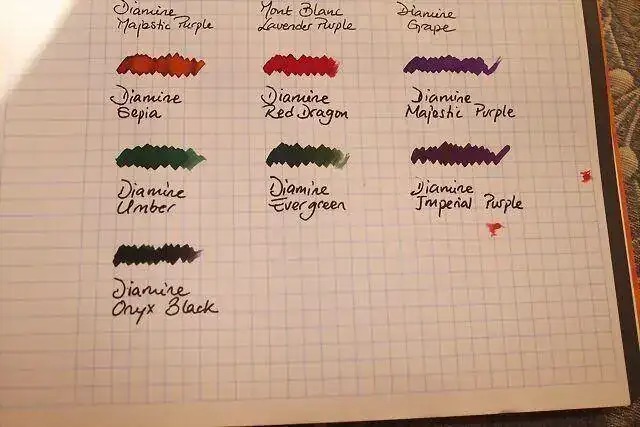 Diamine
Majestic Purple
Mont Blanc
Lavender Purple
Diamine
Grape
Diamine
Sepia
Diamine
Red Dragon
Diamine
Majestic Purple
Diamine
Umber
Diamine
Evergreen
Diamine
Imperial Purple
Diamine
Onyx Black